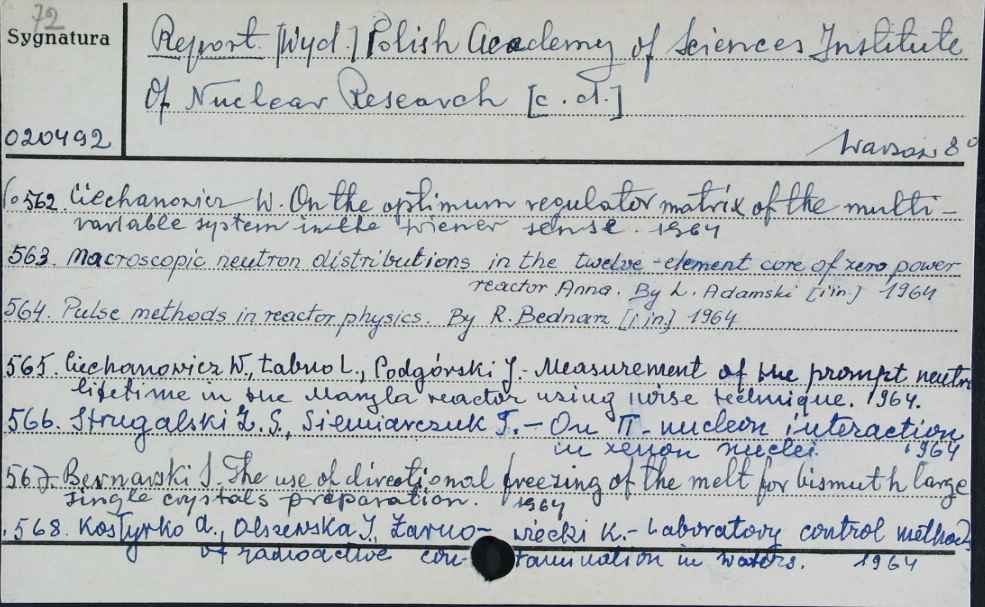 72
Sygnatura
Report [Wyd.] Polish Academy of Sciences Institute
Of Nuclear Research [c.d.]
020492
Warsaw 8°
562. Ciechanowicz W. On the optimum regulator matrix of the multi-
variable system in the Wiener sense. 1964
563. Macroscopic neutron distributions in the twelve-element core of zero power
reactor Anna. By L. Adamski [i in.] 1964
564. Pulse methods in reactor physics. By R. Bednarz [i in.] 1964
565. Ciechanowicz W., Łabno L., Podgórski J. - Measurement of the prompt neutr
lifetime in the Maryla reactor using noise technique. 1964.
566. Strugalski Z.S., Siemiarczuk T. - On π-nucleon interaction
in xenon nuclei. 1964
567. Bernarski J. The use of directional freezing of the melt for bismuth large
single crystals preparation. 1964
568. Kostyrko A., Olszewska J., Żarno- wiecki K. - Laboratory control methods
of radioactive con- tamination in waters. 1964